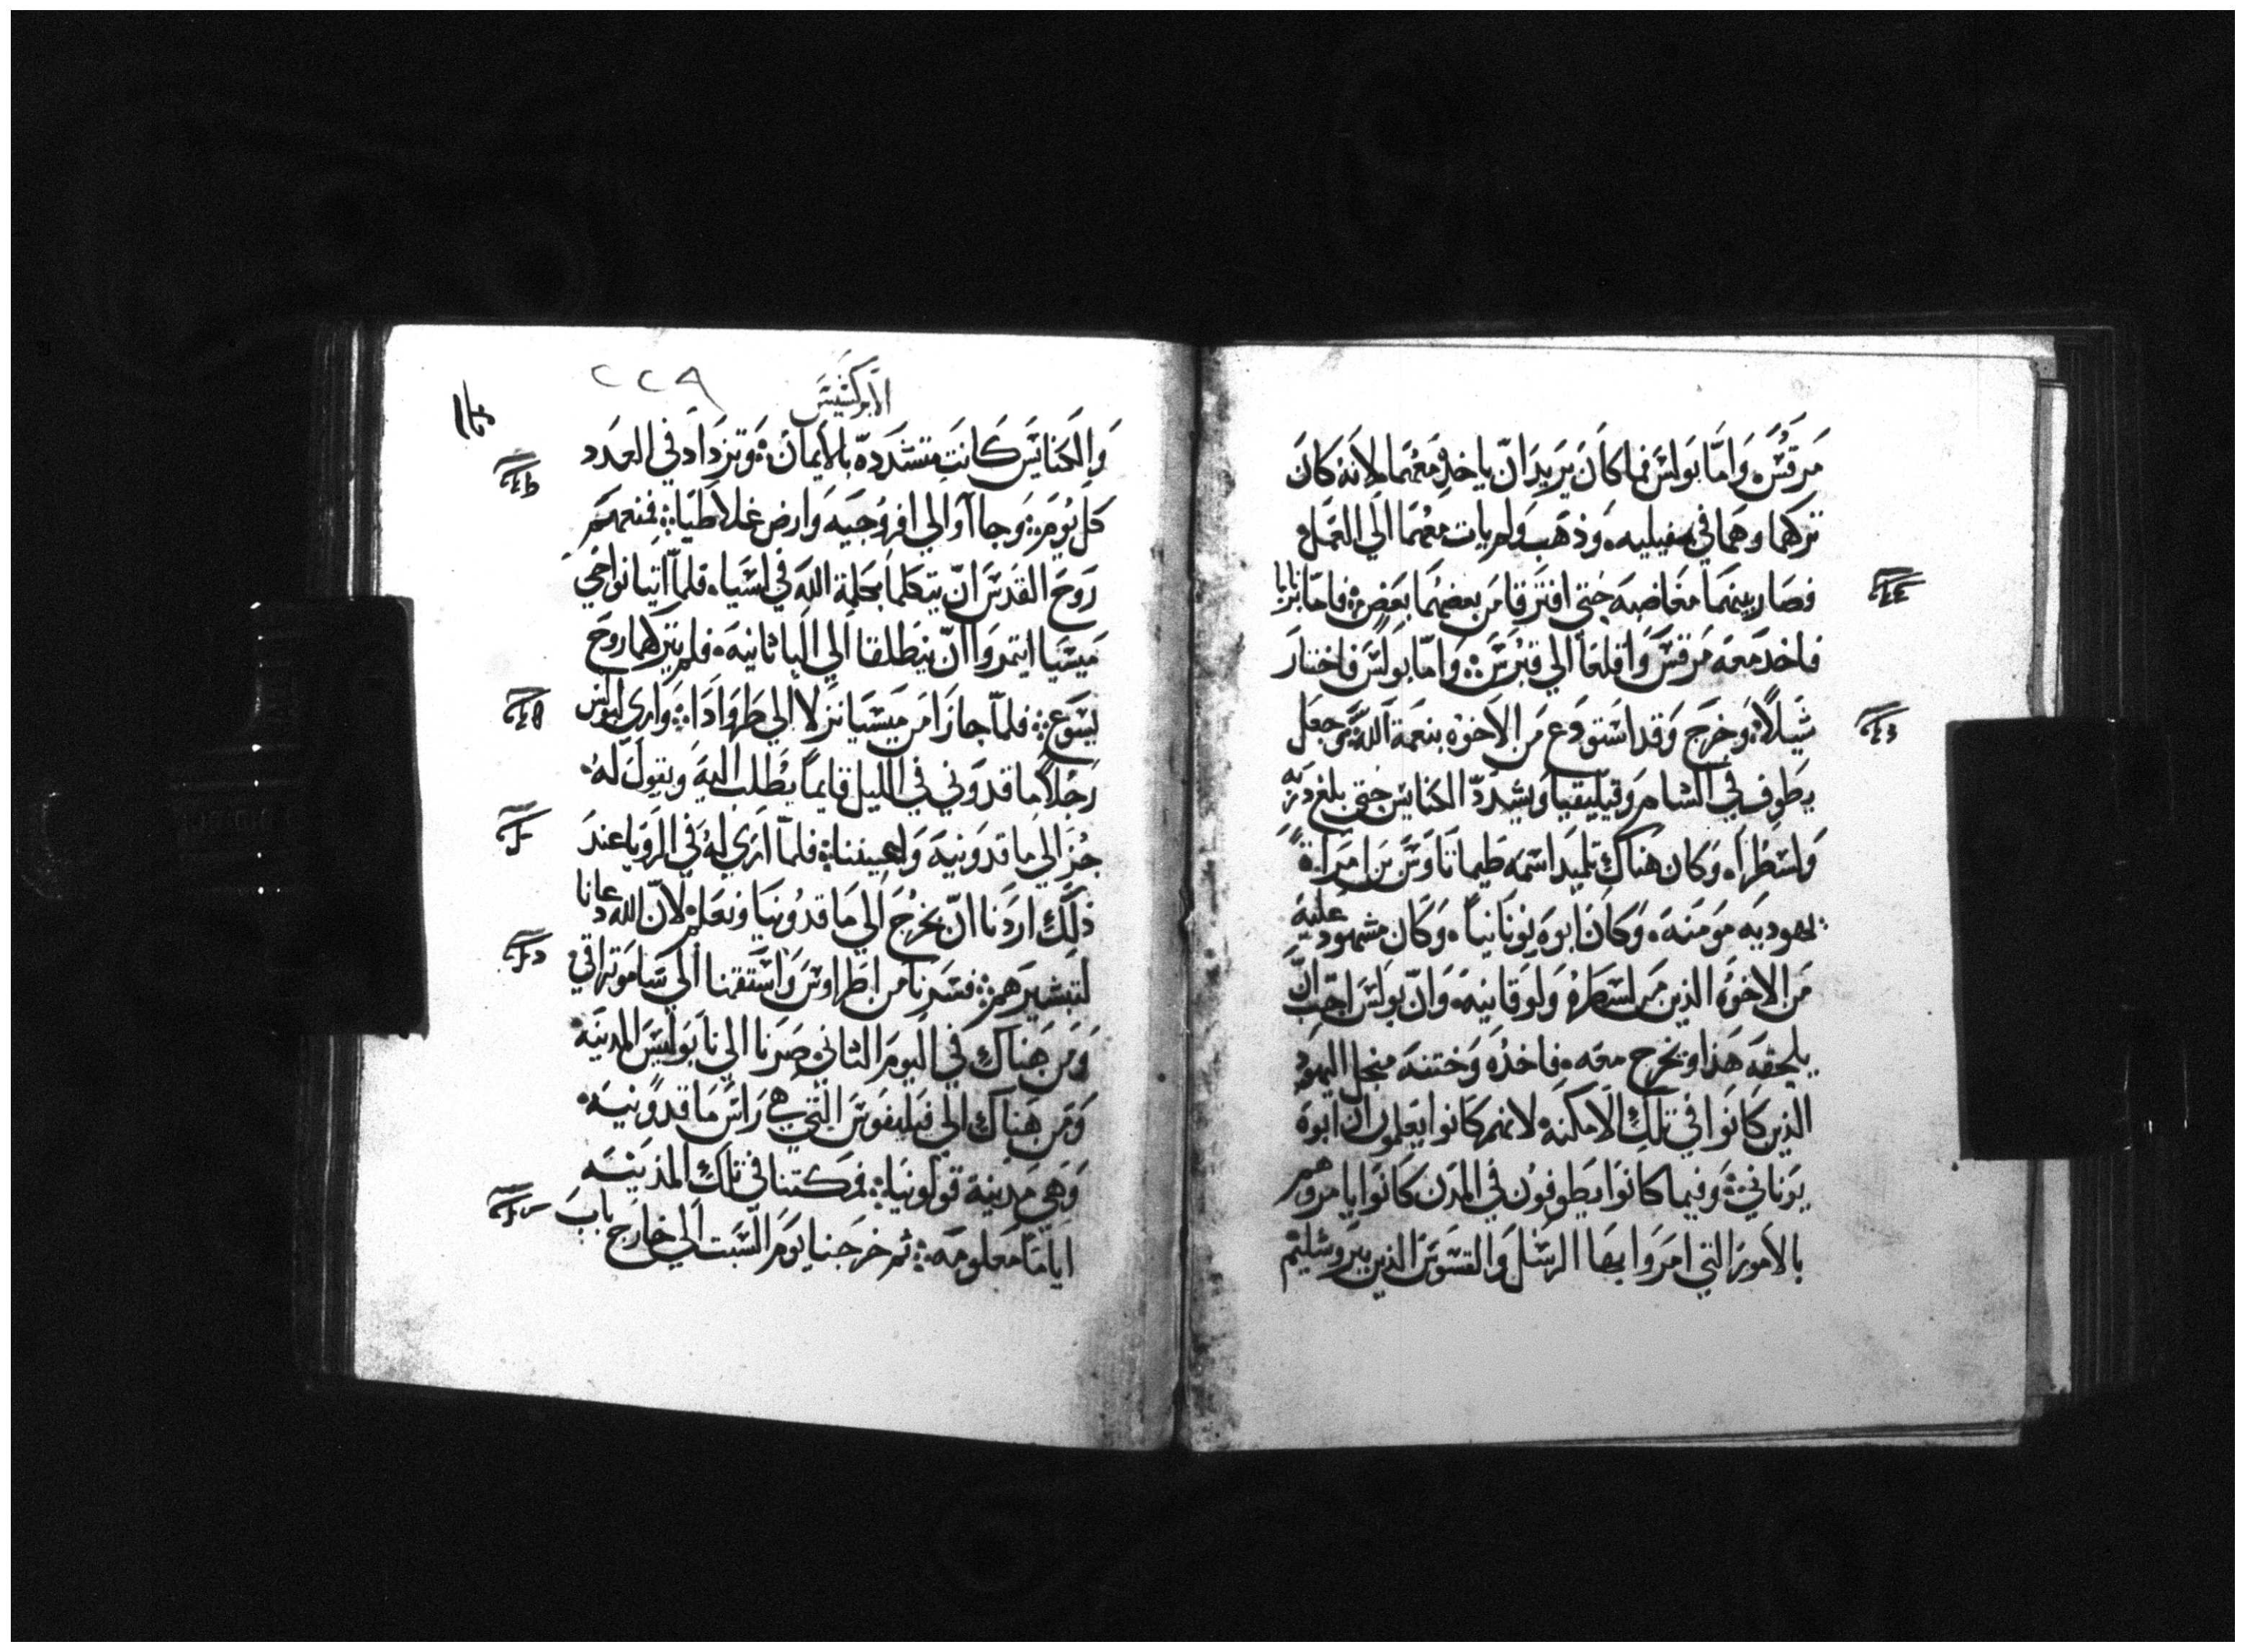 مَرقُسَ، وَامَّا بَولسَ فما كاَنَ يَريَد اَنّ ياخُدهُ مَعهُمَا لانهَ كَانَ
تركهما وهَما في مفيليه، وَذهَبَ ولم يات معهُمَا الَي العَمَل
فصَار بينهمَا مغَاضبهَ حتي افترقا مَن بعضهُمَا بعَضٍ فامَا برنابا
فاخد مَعهَ مَرقسَ وَاقلعَا الي قبرُسَ وَامّا بَولسَ فاختارَ
شَيلاً وَخرَج وَقد استودَع مَن الاَخوهْ بنعمَة اللهَ وجعَل
يَطوف في الشام وَقيليقيا وَيشدَدّ الكنايسَ حَتي بلغ دربَه
وَلسُطرَا، وَكان هنَاك تلميد اسَمهَ طيماتاوسَ بَن امرَاة
يهوديَه مَومَنهَ، وَكاَنَ ابوهَ يُونَانياً، وَكان مَشهود عليهَ
مَن الاخوُه الذين مَن لسَطرهُ وَلوقانيهَ، وَانّ بوَلسَ احَبّ انّ
يلحقهَ هَذا ويخرج معَه، فاخذُه وَختنهَ منجل اليهوُد
الذين كَانَوا في تلكَ الاَمكنهَ لانهم كَانوا يَعلمون ان ابوهَ
يوَناني وَفيما كانوَا يطَوفون في المدَن كَانوَا يامرَوهم
بالاَمورَ التي امرَوا بهَا الرسُل وَالقسَوسَ الذين بيرَوشليمَ
الابركسَيسَ
٢٢٩
وَالكنَايسَ كَانتَ تتشَددَه بالايمَان وَتزدَاد في العَدد
كل يُومَ وَجاا اَوالي افروُجيَه وَارض غلاطَيَا فمنعهمَ
رَوحَ القدَسَ انّ يتكلما بكلمة اللهَ في اسَيا، فلماّ اتيا نواحَي
مَيسَيا ايتمروَا انّ ينطلقا الَي الباثانيهَ، فلم يتركهما روحَ
يسَوَع فلماّ جازَا مَن مَيسَيا نزلا الي طَروَادَا وَاري لبولس
رَجُلاً ماقدَوني في الليل قايماً يُطلب اليهَ ويقول لهُ
جُز الي ماقدونيهَ وَاعيننا فلماّ اَرَي لهُ في الرَويا عندَ
ذلكَّ ارَدنا انّ نخرُجَ الي مَاقدُونيَا وَنعَلم لاَنّ الله دعانا
لتبشيرَهم فسَرنا من اطَراوسَ وَاسَتقمنا الي سَاموتراقي
وَمَن هنَاك في اليومَ الثاني صَرنا الي نابَوليسَ المدينهَ
وَمَن هنَاك الي فيليفوسَ التي هيَ رَاسَ مَاقدوُنيَه
وَهي مَدينة قولونيَا فمكثنا في تلك المدينَه
ايَامَاً مَعلومَه ثم خرَجنا يَومَ السَبت الَي خارَج بابَ